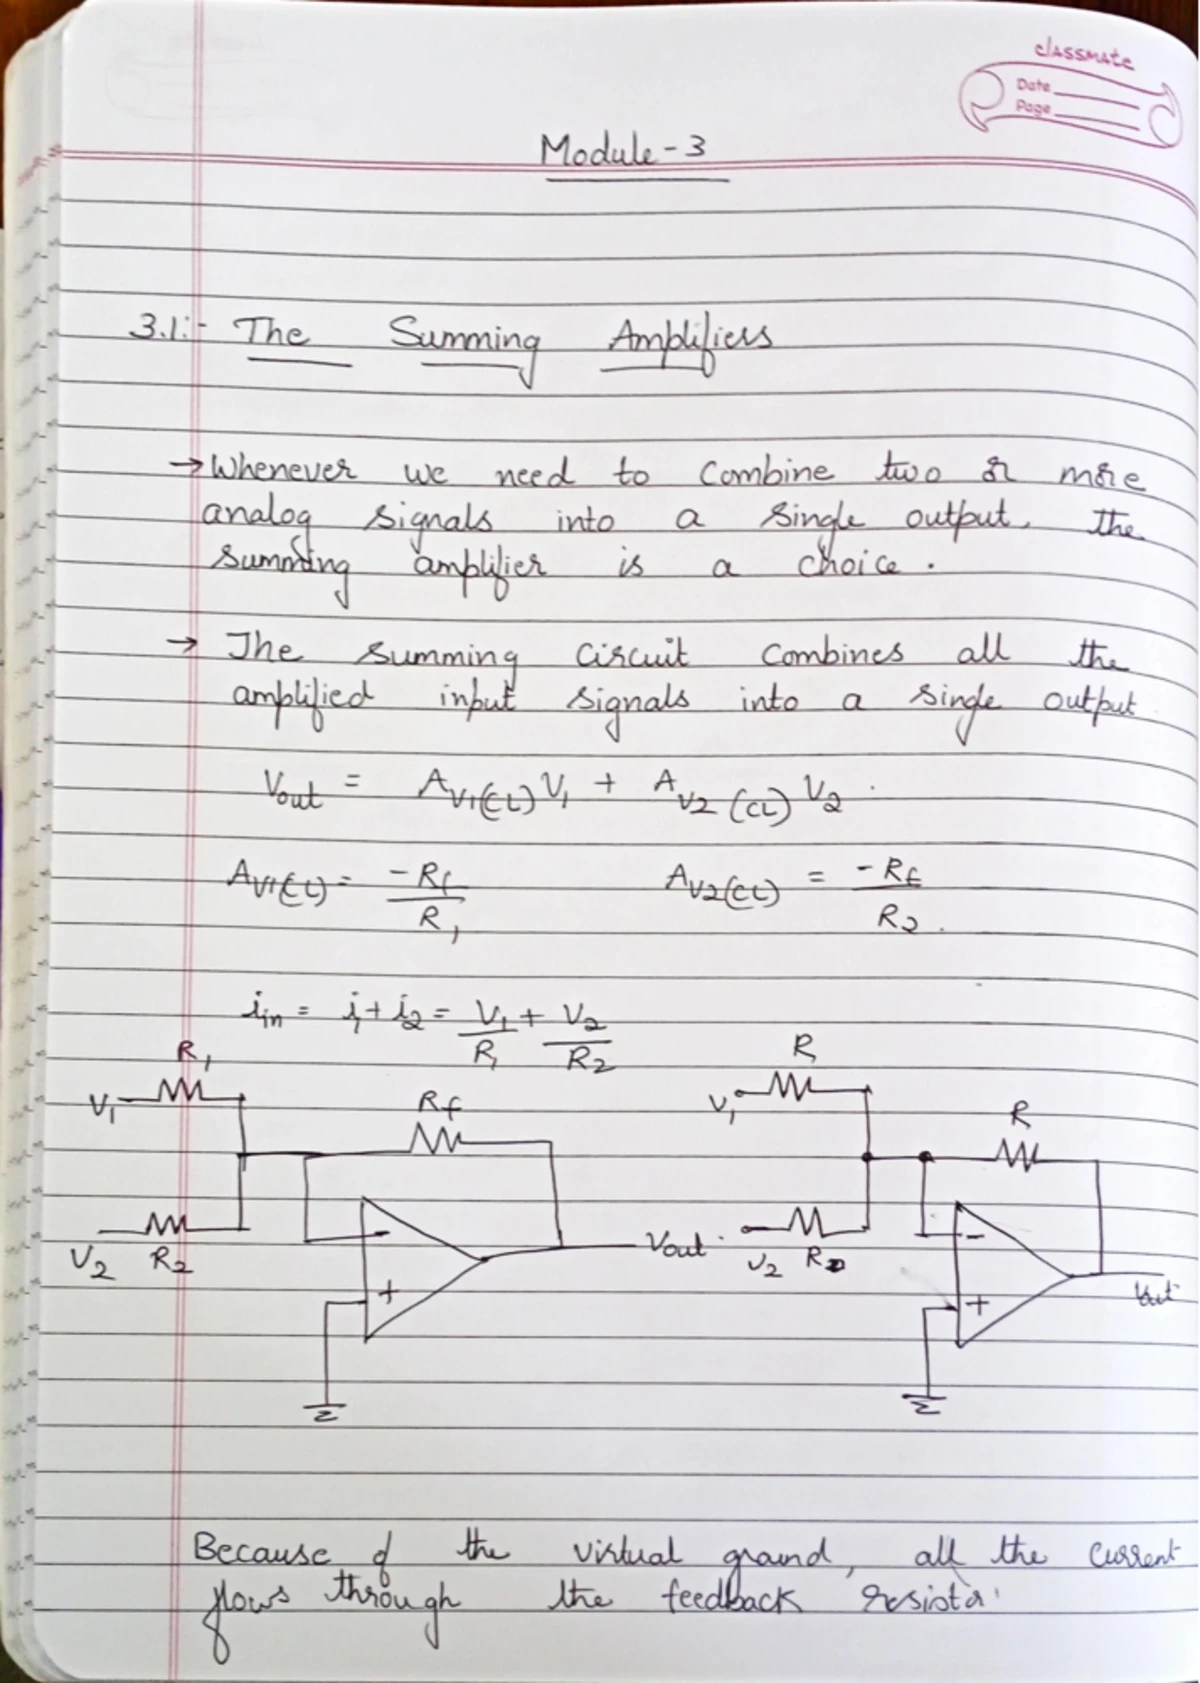 classmate
Date
Page
Module - 3
3.1:- The Summing Amplifiers
→ Whenever we need to combine two or more
analog signals into a single output, the
summing amplifier is a choice.
→ The summing circuit combines all the
amplified input signals into a single output
Vout = AV1(CL) V1 + AV2(CL) V2.
AV1(CL) = -Rf/R1 AV2(CL) = -Rf/R2.
iin = i1 + i2 = V1/R1 + V2/R2
R1 R
V1 Rf V1 R
- Vout. -
V2 R2 V2 R
+ + Vout
Because of the virtual ground, all the current
flows through the feedback resistor.